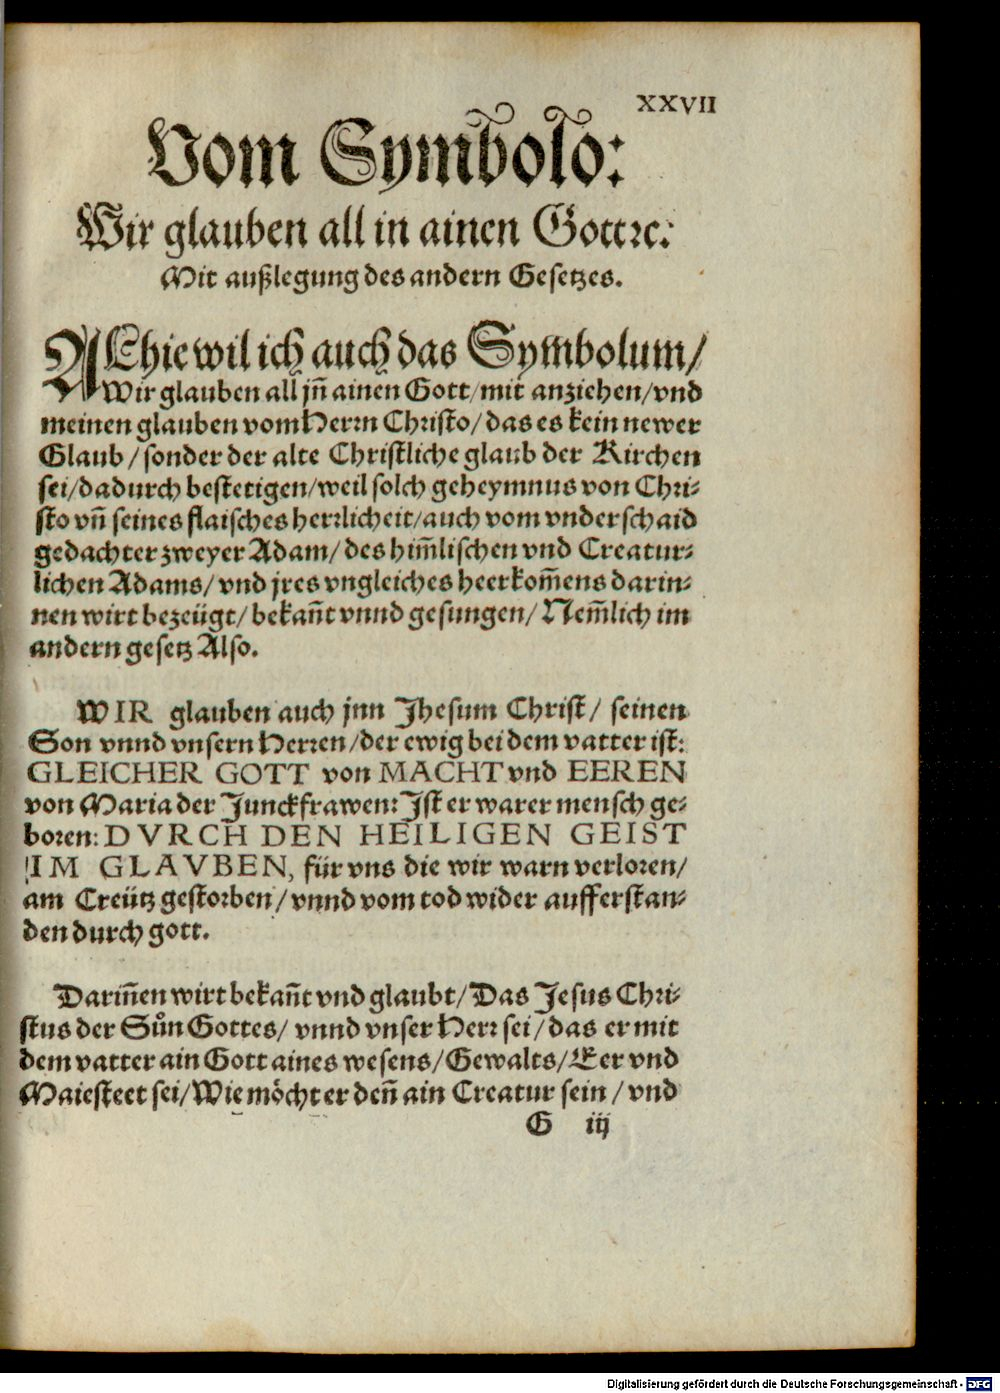 XXVII
Vom Symbolo:
Wir glauben all in ainen Gott ꝛc.
Mit außlegung des andern Gesetzes.
ALhie wil ich auch das Symbolum/
Wir glauben all jñ ainen Gott/mit anziehen/vnd
meinen glauben vom Herrn Christo/das es kein newer
Glaub/sonder der alte Christliche glaub der Kirchen
sei/dadurch bestetigen/weil solch geheymnus von Chri⸗
sto vñ seines flaisches herrlicheit/auch vom vnderschaid
gedachter zweyer Adam/des him̃lischen vnd Creatur⸗
lichen Adams/vnd jres vngleiches heerkom̃ens darin⸗
nen wirt bezeügt/bekañt vnnd gesungen/Nem̃lich im
andern gesetz Also.
WIR glauben auch jnn Jhesum Christ/seinen
Son vnnd vnsern Herren/der ewig bei dem vatter ist:
GLEICHER GOTT von MACHT vnd EEREN
von Maria der Junckfrawen: Jst er warer mensch ge⸗
boren: DVRCH DEN HEILIGEN GEIST
IM GLAVBEN, für vns die wir warn verloren/
am Creütz gestorben/vnnd vom tod wider aufferstan⸗
den durch gott.
Dariñen wirt bekañt vnd glaubt/Das Jesus Chri⸗
stus der Sůn Gottes/vnnd vnser Herr sei/das er mit
dem vatter ain Gott aines wesens/Gewalts/Eer vnd
Maiesteet sei/Wie möcht er deñ ain Creatur sein/vnd
G iij
Digitalisierung gefördert durch die Deutsche Forschungsgemeinschaft - DFG